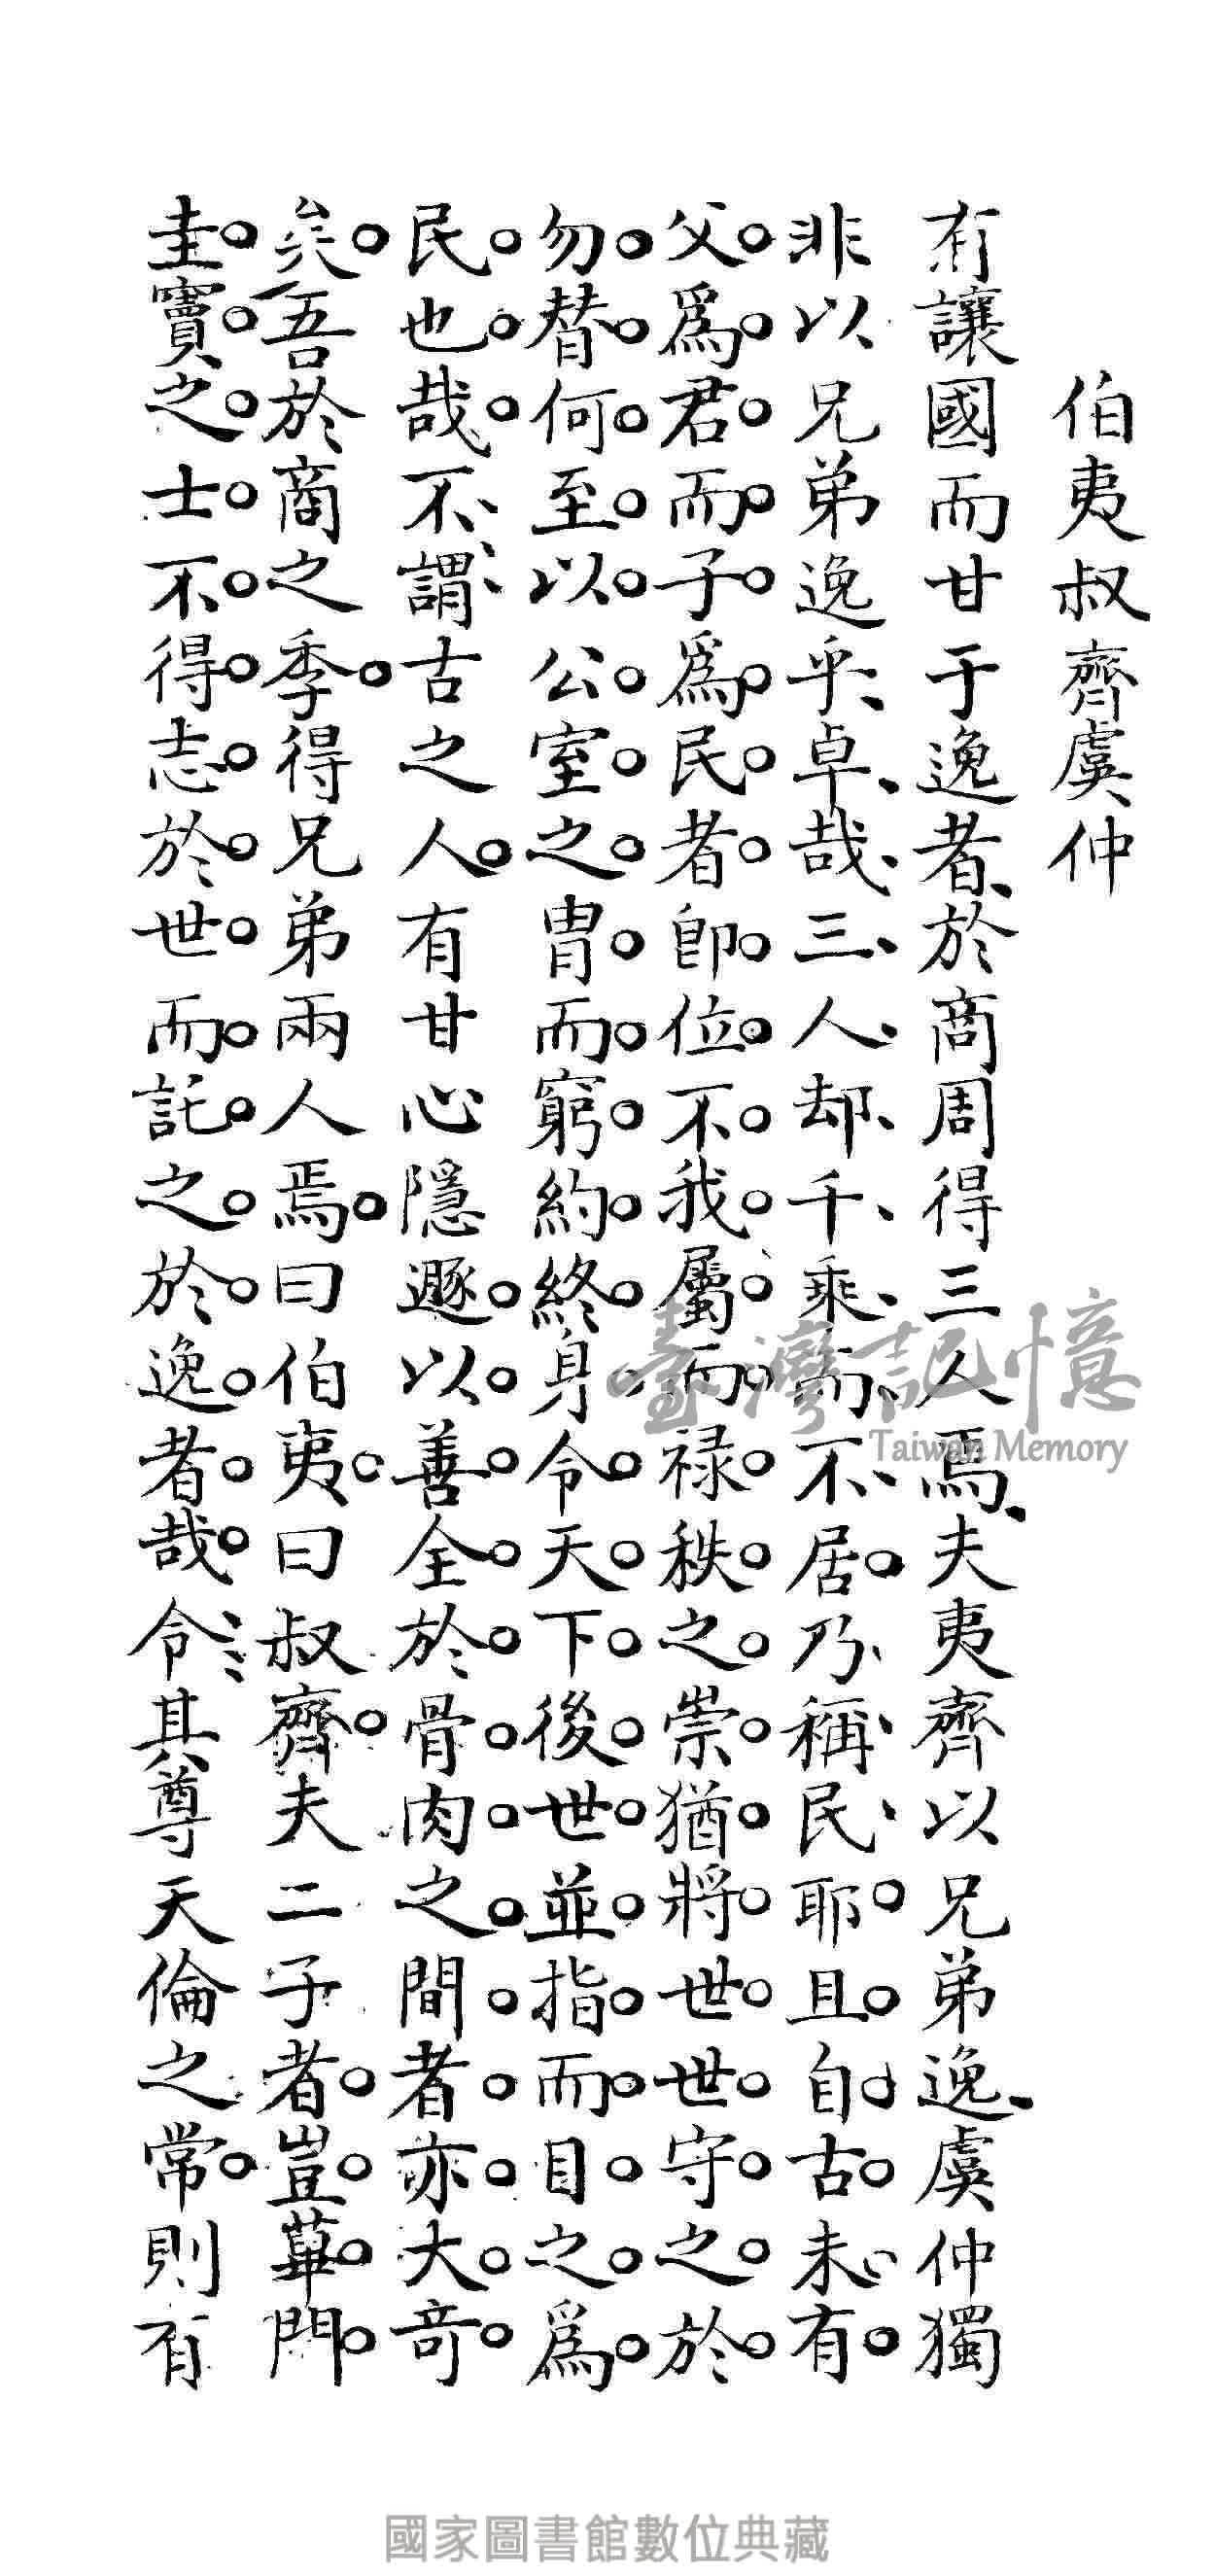 伯夷叔齊虞仲
有讓國而甘于逸者於商周得三人焉夫夷齊以兄弟逸虞仲獨
非以兄弟逸乎卓哉三人却千乘而不居乃稱民耶且自古未有
父爲君而子爲民者卽位不我屬而祿秩之崇猶將世世守之於
勿替何至以公室之冑而窮約終身令天下後世並指而目之爲
民也哉不謂古之人有甘心隱遯以善全於骨肉之間者亦大奇
矣吾於商之季得兄弟兩人焉曰伯夷曰叔齊夫二子者豈蓽門
圭竇之士不得志於世而託之於逸者哉令其尊天倫之常則有
臺灣記憶
Taiwan Memory
國家圖書館數位典藏